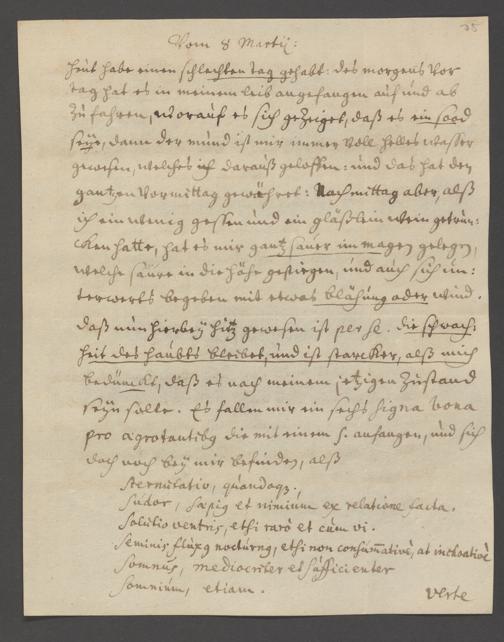 35
Vom 8 Martij:
heut habe einen schlechten tag gehabt: des morgens vor
tag hat es in meinem leib angefangen auf und ab
zu fahren, worauf es sich gezeiget, daß es ein sood
seye, dann der mund ist mir immer voll helles wasser
gewesen, welches ich darauß geloffen: und das hat den
gantzen vormittag gewähret: Nachmittag aber, alß
ich ein wenig gessen und ein gläßlein wein getrun-
cken hatte, hat es mir gantz sauer im magen gelegen,
welche säure in die höhe gestiegen, und auch sich un-
terwerts begeben mit etwas blähung oder wind.
daß nun hierbey hitz gewesen ist per se. die schwach-
heit des haubts bleibet, und ist starcker, alß mich
bedunckt, daß es nach meinem jetzigen zustand
seyn solte. Es fallen mir ein sechs signa bona
pro ægrotantibq die mit einem S. anfangen, und sich
doch noch bey mir befinden, alß
Sternutatio, quandoqz.
Sudor, sæpiq et nimium ex relatione facta.
Solutio ventris, etsi rarò et cum vi.
Seminis fluxq nocturnq, etsi non consummativè, at inchoativè
Somnus, mediocriter et sufficienter
Somnium, etiam.
verte